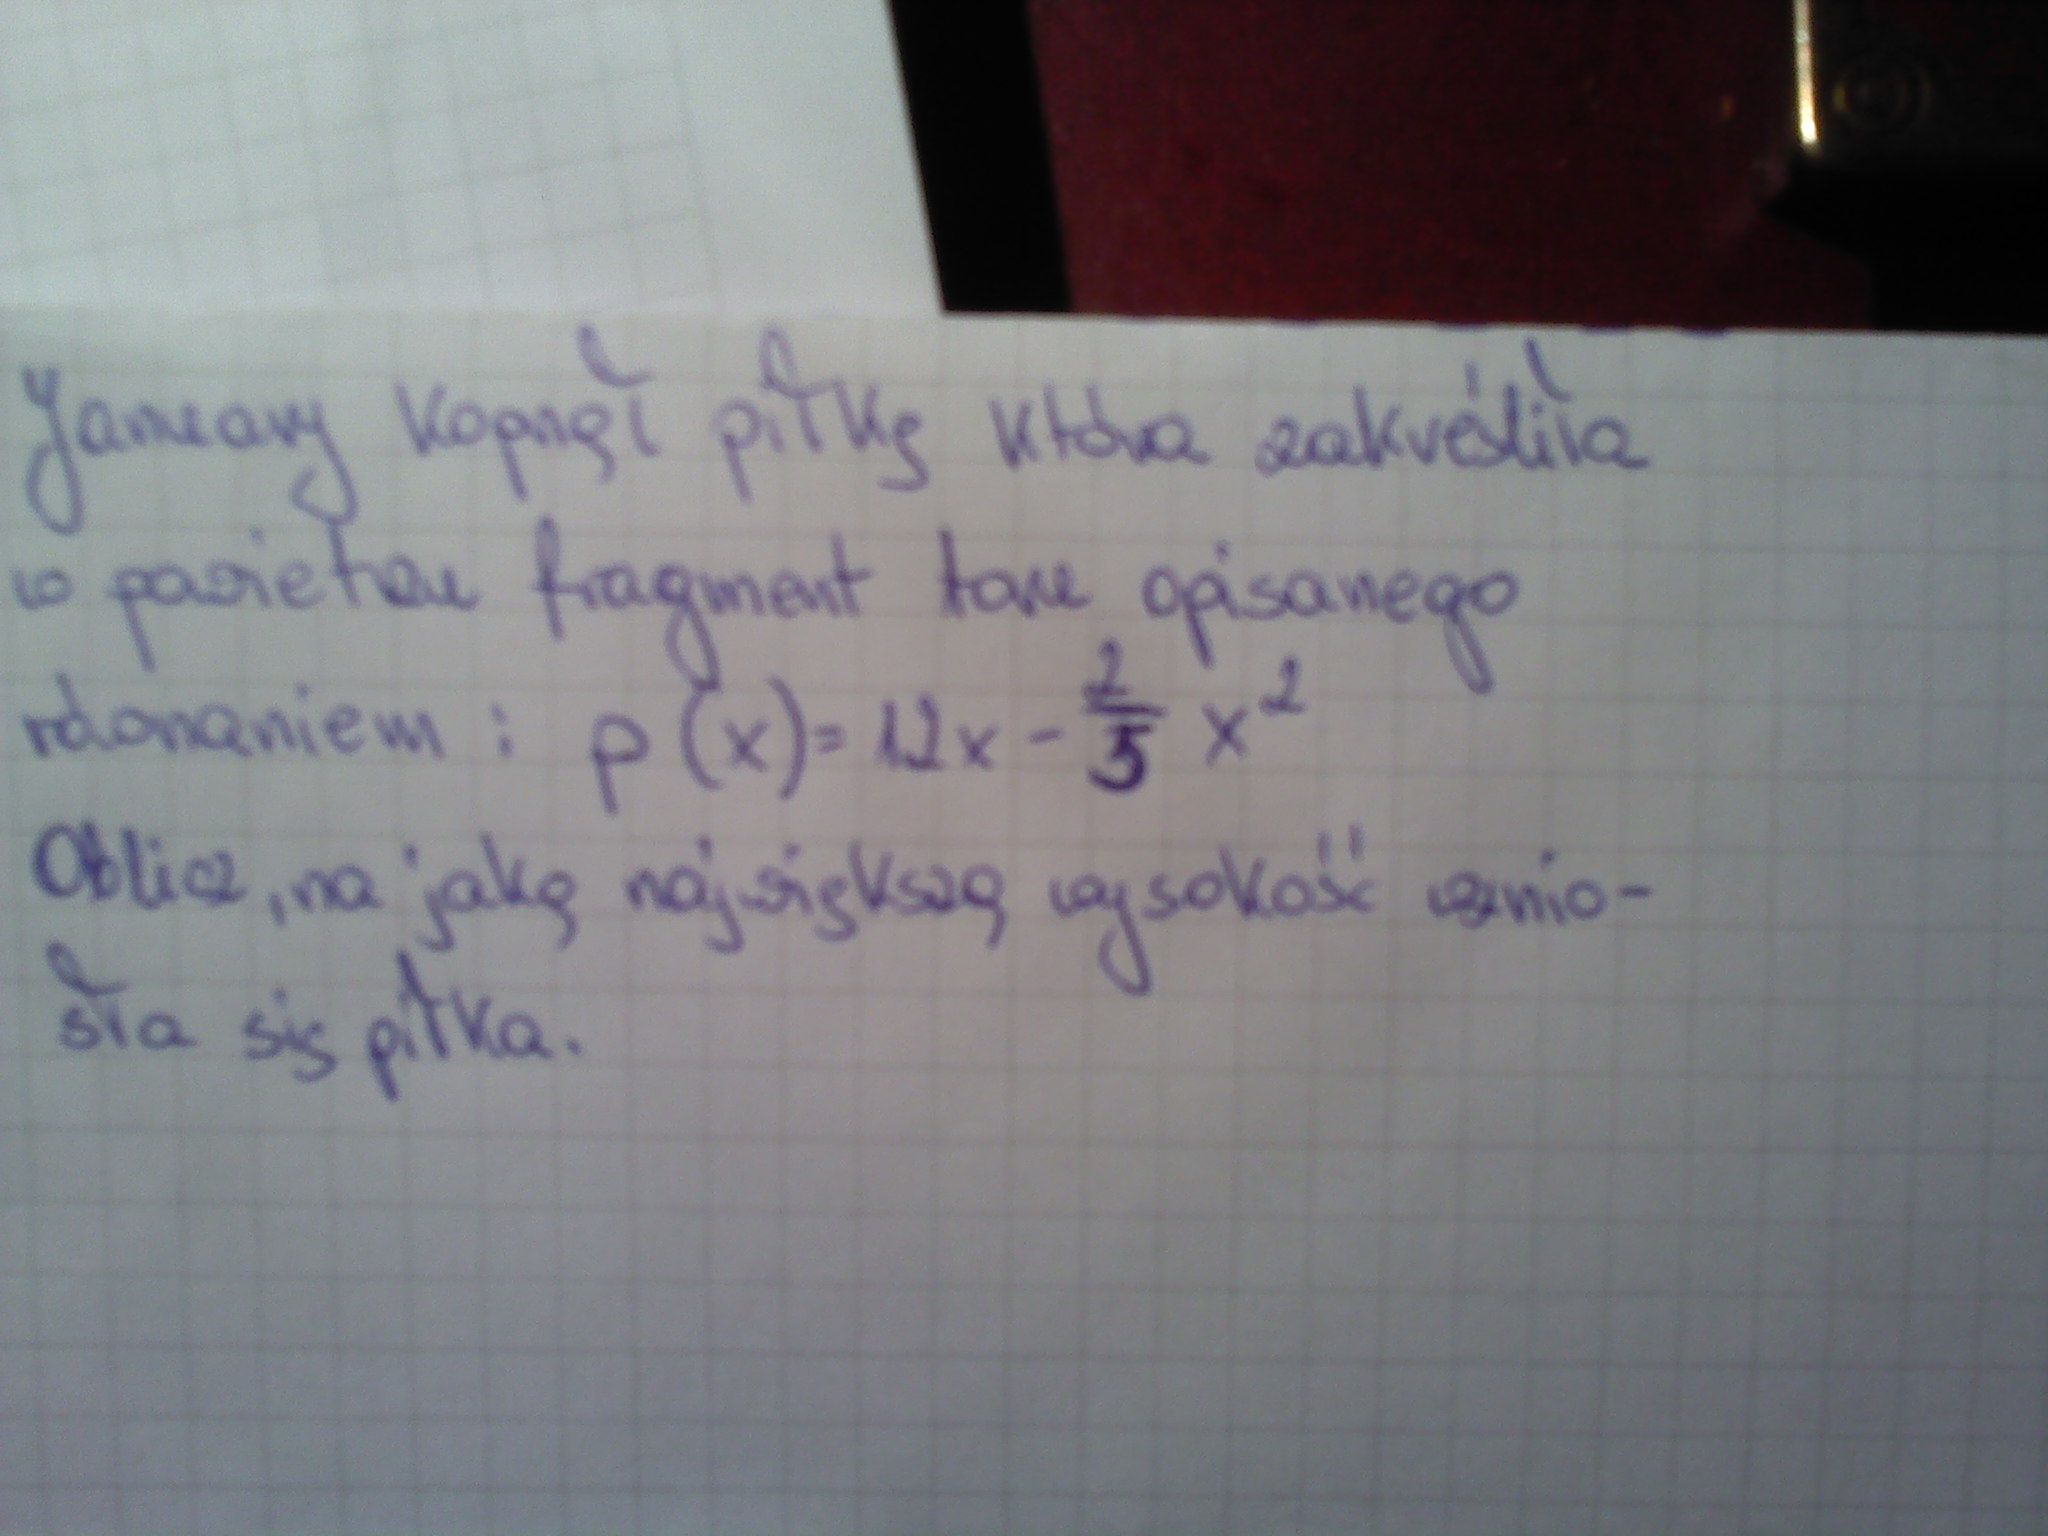 kopnął piłkę która zakréśliła
w powietrzu fragment toru opisanego
równaniem : p(x)= 12x - 2/5 x²
Oblicz, na jaką największą wysokość wznio-
sła się piłka.